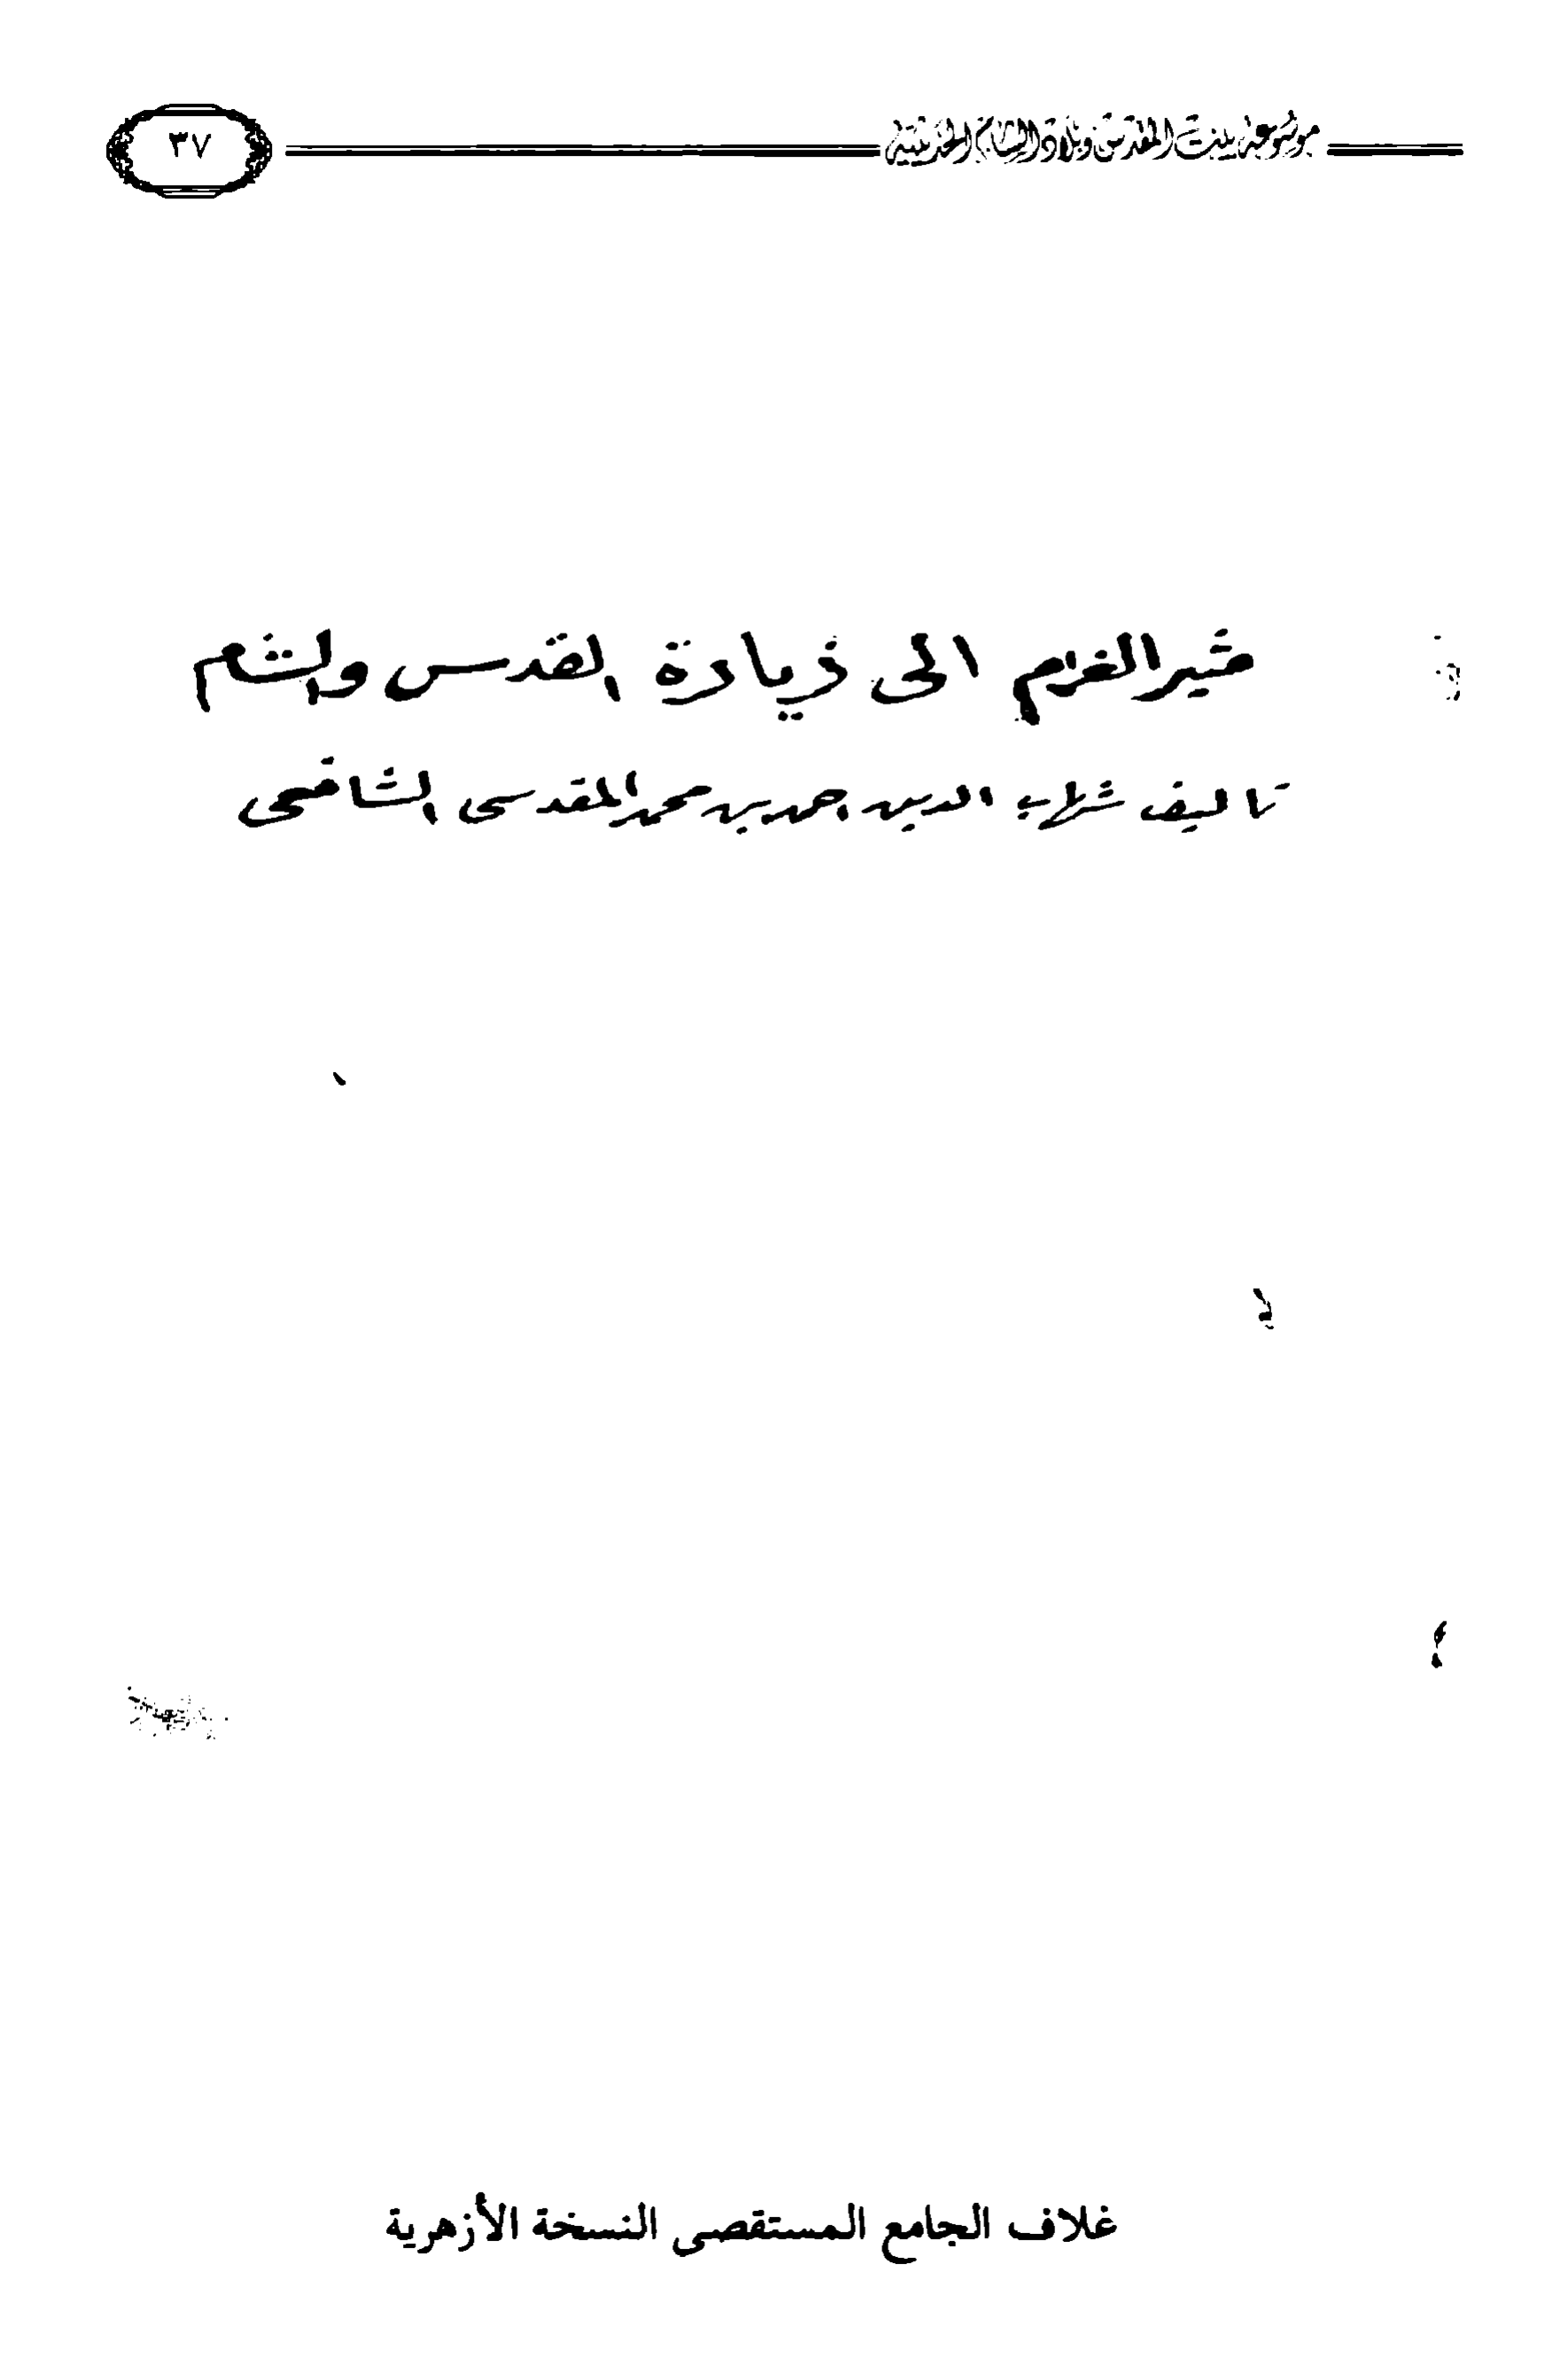 موسوعة بيت المقدس وبلاد الشام الحديثية
٣٧
مثير الغرام الى زيارة القدس والشام
تاليف شهاب الدين احمد بن محمد المقدسى الشافعى
غلاف الجامع المستقصى النسخة الأزهرية